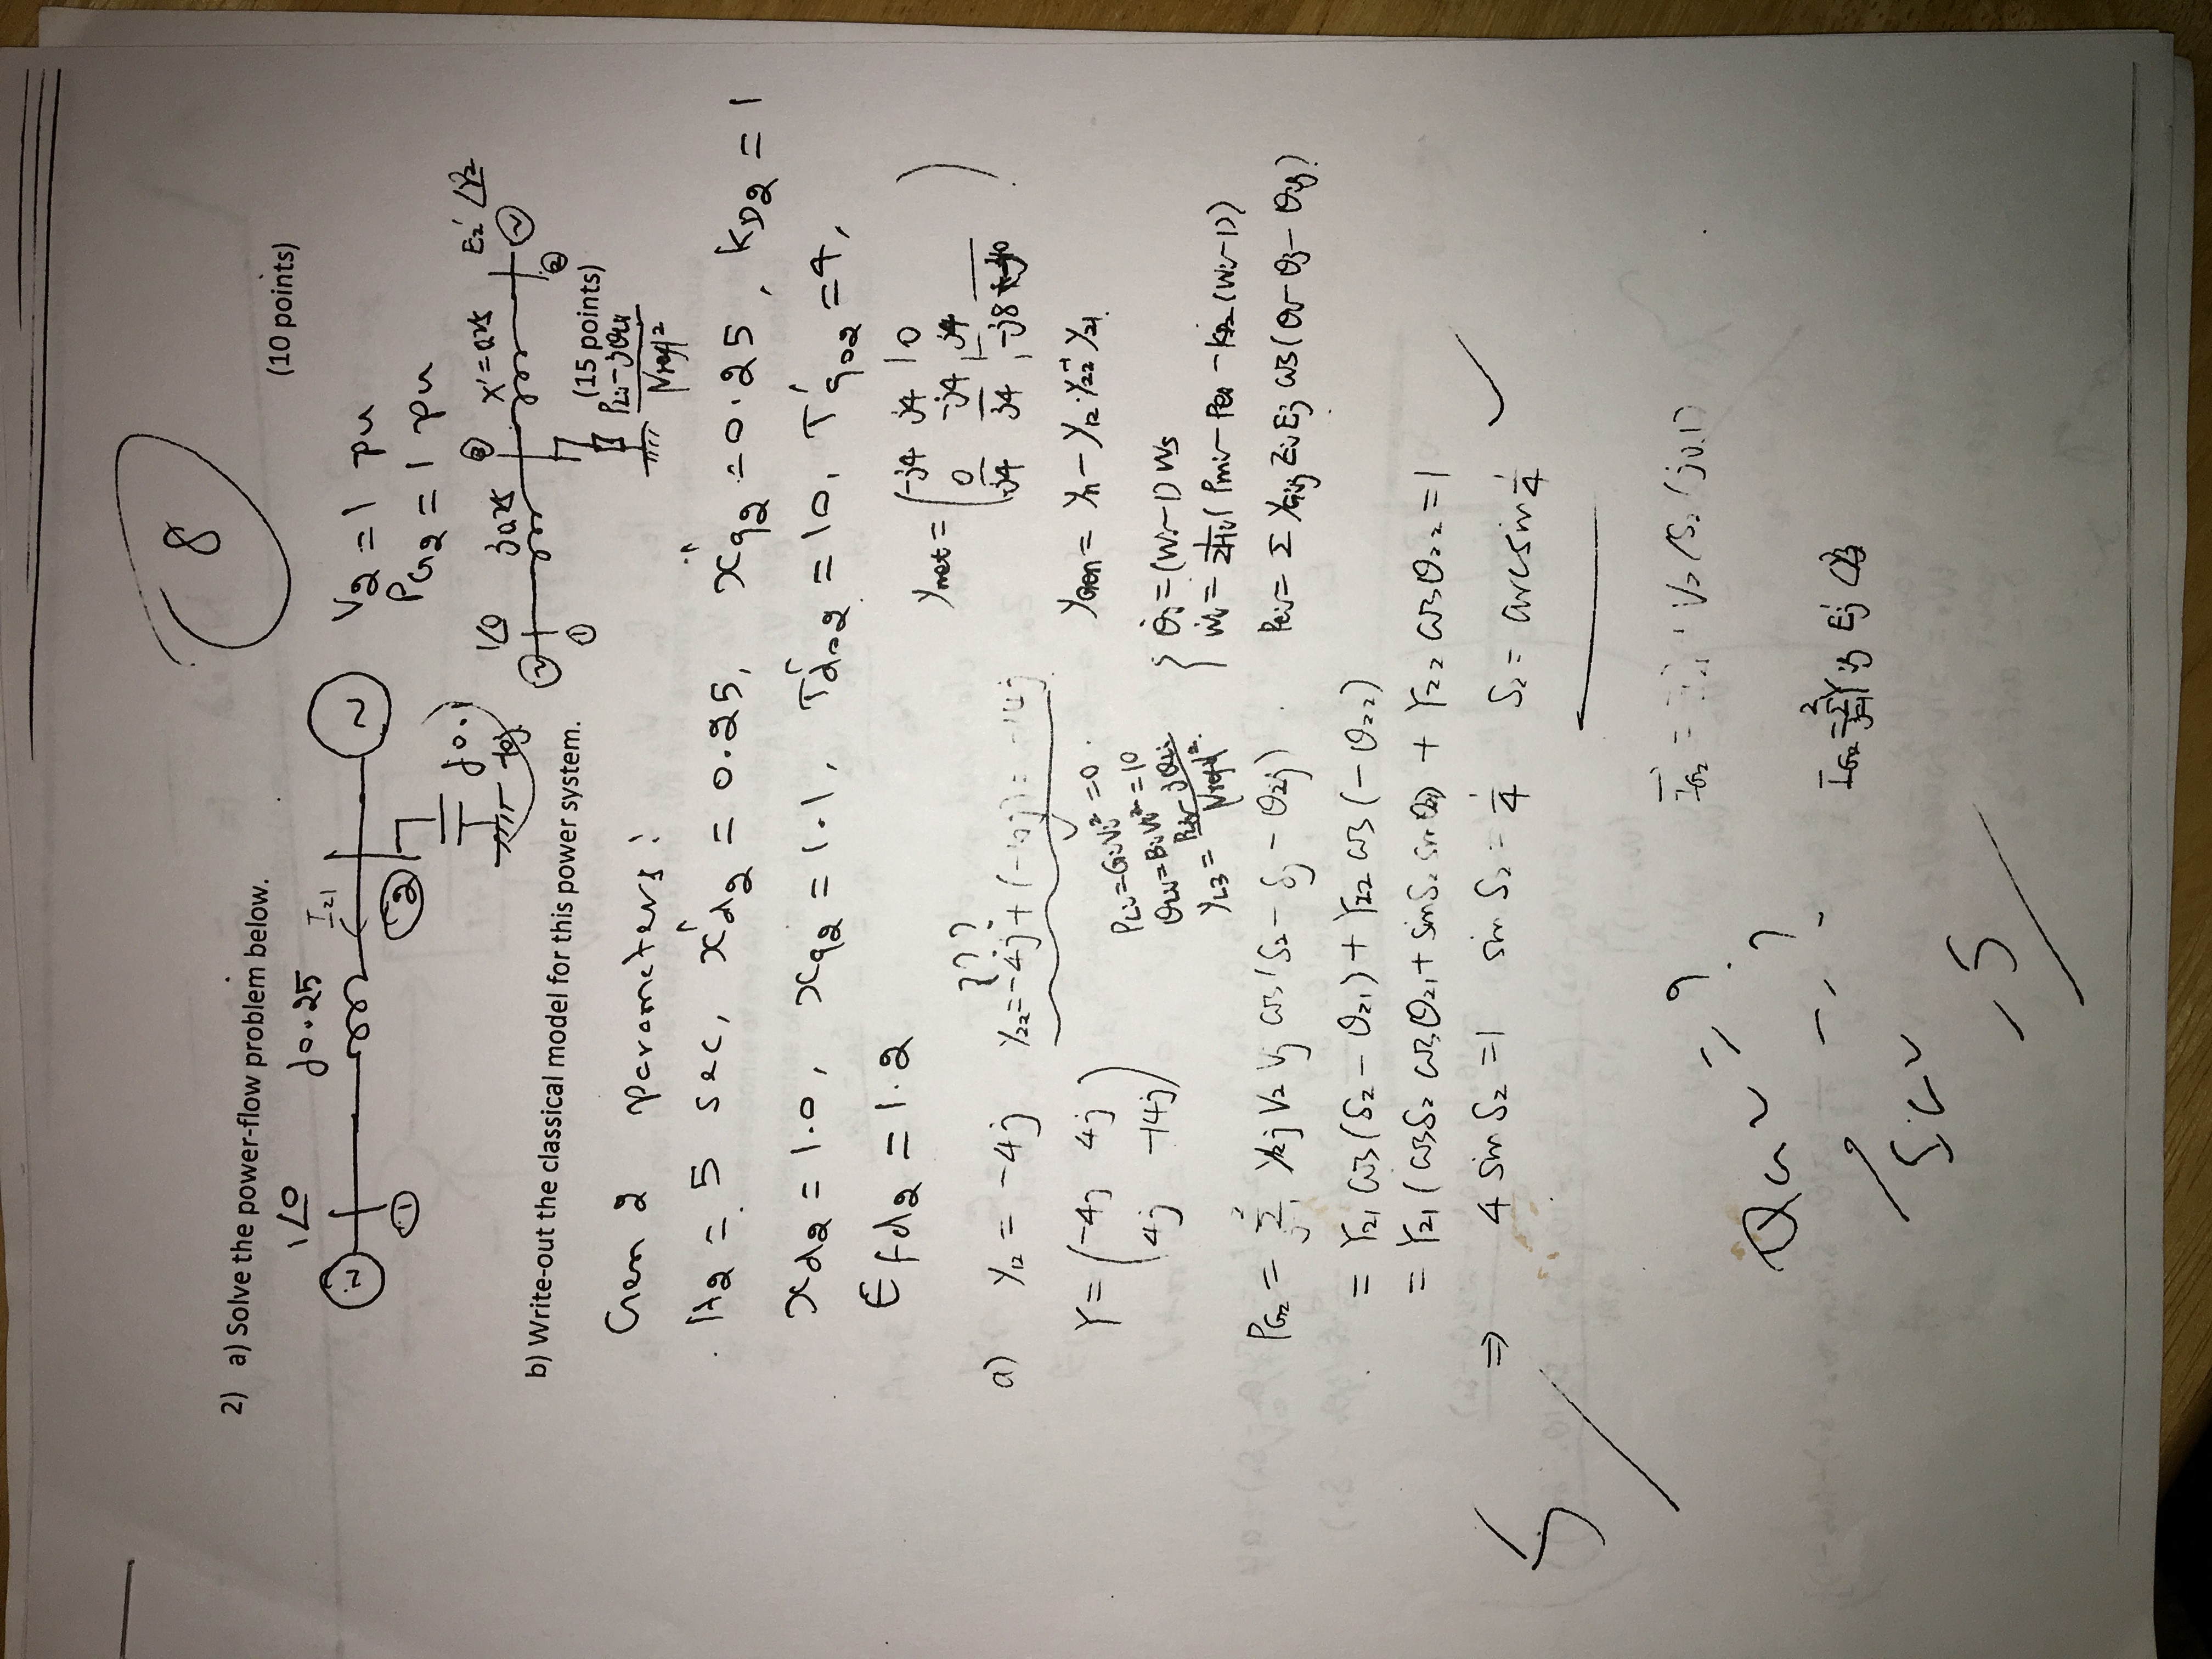 8
2) a) Solve the power-flow problem below.
(10 points)
1∠0 j0.25 I21
~ ~
① ②
j0.1
V2 = 1 pu
PG2 = 1 pu
1∠0 j0.25 ③ X'=0.25 E2'∠γ2
① ②
b) Write-out the classical model for this power system.
(15 points)
PLi-jQLi
|Vref|²
Gen 2 parameters:
H2 = 5 sec, x'd2 = 0.25, x'q2 = 0.25, KD2 = 1
xd2 = 1.0, xq2 = 1.1, T'do2 = 10, T'qo2 = 4,
Efd2 = 1.2
Ynet = ( -j4 j4 | 0
0 -j4 | j4
j4 j4 | -j8 )
???
a) Y12 = -4j Y22=-4j+(-10j)= -14j
Y = ( -4j 4j
4j -14j )
YGen = Yn - Y12·Y22⁻¹ Y21
PLi=GiVi²=0
QLi=BiVi²=10
YL3 = PLi-jQLi
|Vref|²
θi=(Wi-1)Ws
ẇi = 1/2Hi ( Pmi - Pei - KD2 (Wi-1))
PG2 = Σ Y2j V2 Vj cos(δ2 - δj - θ2j)
Pei = Σ YGij Ei Ej cos(θi-θj-θij)
= Y21 cos(δ2 - θ21) + Y22 cos(-θ22)
= Y21 (cosδ2 cosθ21 + sinδ2 sinθ21) + Y22 cosθ22 = 1
⇒ 4 sin δ2 = 1 sin δ2 = 1/4 δ2 = arcsin 1/4 ✓
5
QG2 = ?
IG2 = V2∠δ2 (j0.1)
IG2 = ?
IG2 = Σ Yij Ej'
-5